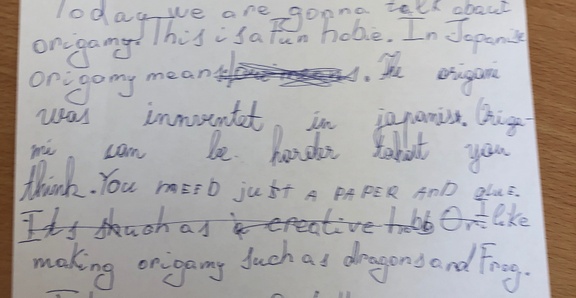 Today we are gonna talk about
origamy. This is a Fun hobie. In Japanise
Origamy means. The origami
was innventet in japanise. Origa-
mi can be harder tahat you
think. You nEED just A PAPER AnD glue.
It's such as a creative hobb Or I like
making origamy Such as dragons and Frog.